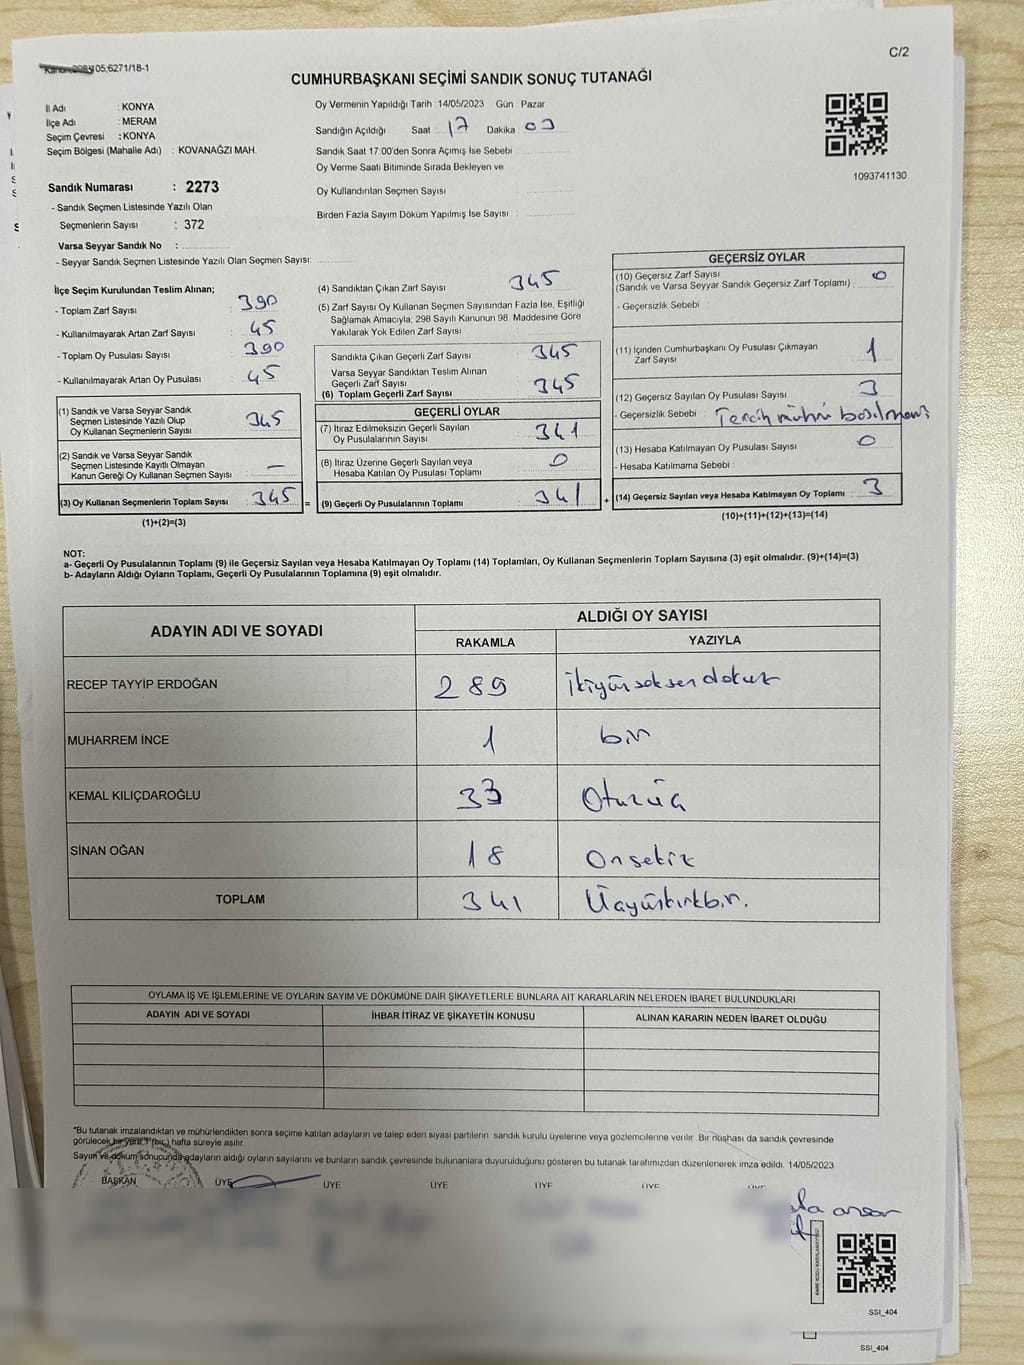 C/2
05,6271/18-1
CUMHURBAŞKANI SEÇİMİ SANDIK SONUÇ TUTANAĞI
İl Adı : KONYA
İlçe Adı : MERAM
Seçim Çevresi : KONYA
Seçim Bölgesi (Mahalle Adı) : KOVANAĞZI MAH.
Oy Vermenin Yapıldığı Tarih : 14/05/2023 Gün : Pazar
Sandığın Açıldığı Saat : 17 Dakika : 03
Sandık Saat 17.00'den Sonra Açımış İse Sebebi :
Oy Verme Saati Bitiminde Sırada Bekleyen ve
Oy Kullandırılan Seçmen Sayısı :
Birden Fazla Sayım Döküm Yapılmış İse Sayısı :
1093741130
Sandık Numarası : 2273
- Sandık Seçmen Listesinde Yazılı Olan
Seçmenlerin Sayısı : 372
Varsa Seyyar Sandık No :
- Seyyar Sandık Seçmen Listesinde Yazılı Olan Seçmen Sayısı:
İlçe Seçim Kurulundan Teslim Alınan;
- Toplam Zarf Sayısı : 390
- Kullanılmayarak Artan Zarf Sayısı : 45
- Toplam Oy Pusulası Sayısı : 390
- Kullanılmayarak Artan Oy Pusulası : 45
(1) Sandık ve Varsa Seyyar Sandık
Seçmen Listesinde Yazılı Olup
Oy Kullanan Seçmenlerin Sayısı : 345
(2) Sandık ve Varsa Seyyar Sandık
Seçmen Listesinde Kayıtlı Olmayan
Kanun Gereği Oy Kullanan Seçmen Sayısı : —
(3) Oy Kullanan Seçmenlerin Toplam Sayısı : 345 =
(1)+(2)=(3)
(4) Sandıktan Çıkan Zarf Sayısı : 345
(5) Zarf Sayısı Oy Kullanan Seçmen Sayısından Fazla İse, Eşitliği
Sağlamak Amacıyla, 298 Sayılı Kanunun 98. Maddesine Göre
Yakılarak Yok Edilen Zarf Sayısı
Sandıkta Çıkan Geçerli Zarf Sayısı : 345
Varsa Seyyar Sandıktan Teslim Alınan
Geçerli Zarf Sayısı
(6) Toplam Geçerli Zarf Sayısı : 345
GEÇERLİ OYLAR
(7) İtiraz Edilmeksizin Geçerli Sayılan
Oy Pusulalarının Sayısı : 341
(8) İtiraz Üzerine Geçerli Sayılan veya
Hesaba Katılan Oy Pusulası Toplamı : 0
(9) Geçerli Oy Pusulalarının Toplamı : 341 +
GEÇERSİZ OYLAR
(10) Geçersiz Zarf Sayısı
(Sandık ve Varsa Seyyar Sandık Geçersiz Zarf Toplamı) : 0
- Geçersizlik Sebebi :
(11) İçinden Cumhurbaşkanı Oy Pusulası Çıkmayan
Zarf Sayısı : 1
(12) Geçersiz Sayılan Oy Pusulası Sayısı : 3
- Geçersizlik Sebebi : Tercih mührü basılmamış
(13) Hesaba Katılmayan Oy Pusulası Sayısı : 0
- Hesaba Katılmama Sebebi :
(14) Geçersiz Sayılan veya Hesaba Katılmayan Oy Toplamı : 3
(10)+(11)+(12)+(13)=(14)
NOT:
a- Geçerli Oy Pusulalarının Toplamı (9) ile Geçersiz Sayılan veya Hesaba Katılmayan Oy Toplamı (14) Toplamları, Oy Kullanan Seçmenlerin Toplam Sayısına (3) eşit olmalıdır. (9)+(14)=(3)
b- Adayların Aldığı Oyların Toplamı, Geçerli Oy Pusulalarının Toplamına (9) eşit olmalıdır.
ADAYIN ADI VE SOYADI ALDIĞI OY SAYISI
RAKAMLA YAZIYLA
RECEP TAYYİP ERDOĞAN 289 İkiyüzseksendokuz
MUHARREM İNCE 1 bir
KEMAL KILIÇDAROĞLU 33 Otuzüç
SİNAN OĞAN 18 Onsekiz
TOPLAM 341 Üçyüzkırkbir.
OYLAMA İŞ VE İŞLEMLERİNE VE OYLARIN SAYIM VE DÖKÜMÜNE DAİR ŞİKAYETLERLE BUNLARA AİT KARARLARIN NELERDEN İBARET BULUNDUKLARI
ADAYIN ADI VE SOYADI İHBAR İTİRAZ VE ŞİKAYETİN KONUSU ALINAN KARARIN NEDEN İBARET OLDUĞU
*Bu tutanak imzalandıktan ve mühürlendikten sonra seçime katılan adayların ve talep eden siyasi partilerin sandık kurulu üyelerine veya gözlemcilerine verilir. Bir nüshası da sandık çevresinde
görülecek bir yere 1 (bir) hafta süreyle asılır.
Sayım ve döküm sonucunda adayların aldığı oyların sayılarını ve bunların sandık çevresinde bulunanlara duyurulduğunu gösteren bu tutanak tarafımızdan düzenlenerek imza edildi. 14/05/2023
BAŞKAN ÜYE ÜYE ÜYE ÜYE ÜYE ÜYE
SSI_404
SSI_404